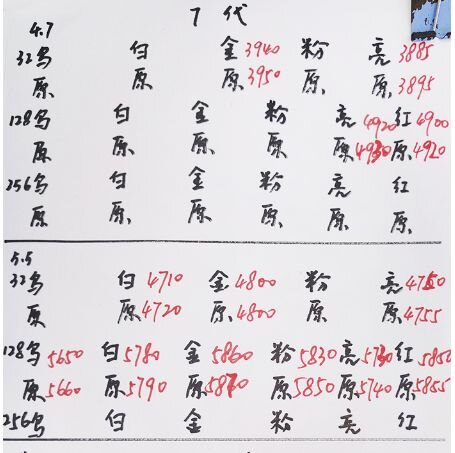 7 代
4.7
32乌 白 金3940 粉 亮3885
原 原 原3950 原 原3895
128乌 白 金 粉 亮4920 红4900
原 原 原 原 原4930 原4920
256乌 白 金 粉 亮 红
原 原 原 原 原 原
5.5
32乌 白4710 金4800 粉 亮4750
原 原4720 原4800 原 原4755
128乌5650 白5780 金5860 粉5830 亮5730 红5850
原5660 原5790 原5870 原5850 原5740 原5855
256乌 白 金 粉 亮 红